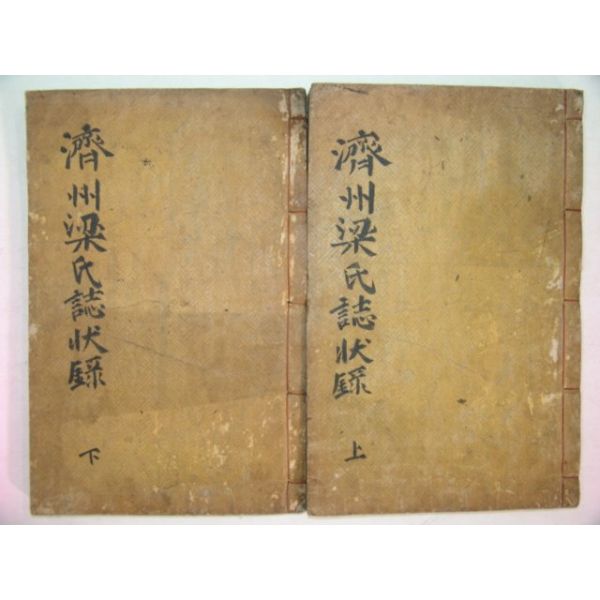 濟州梁氏誌狀錄
上
濟州梁氏誌狀錄
下